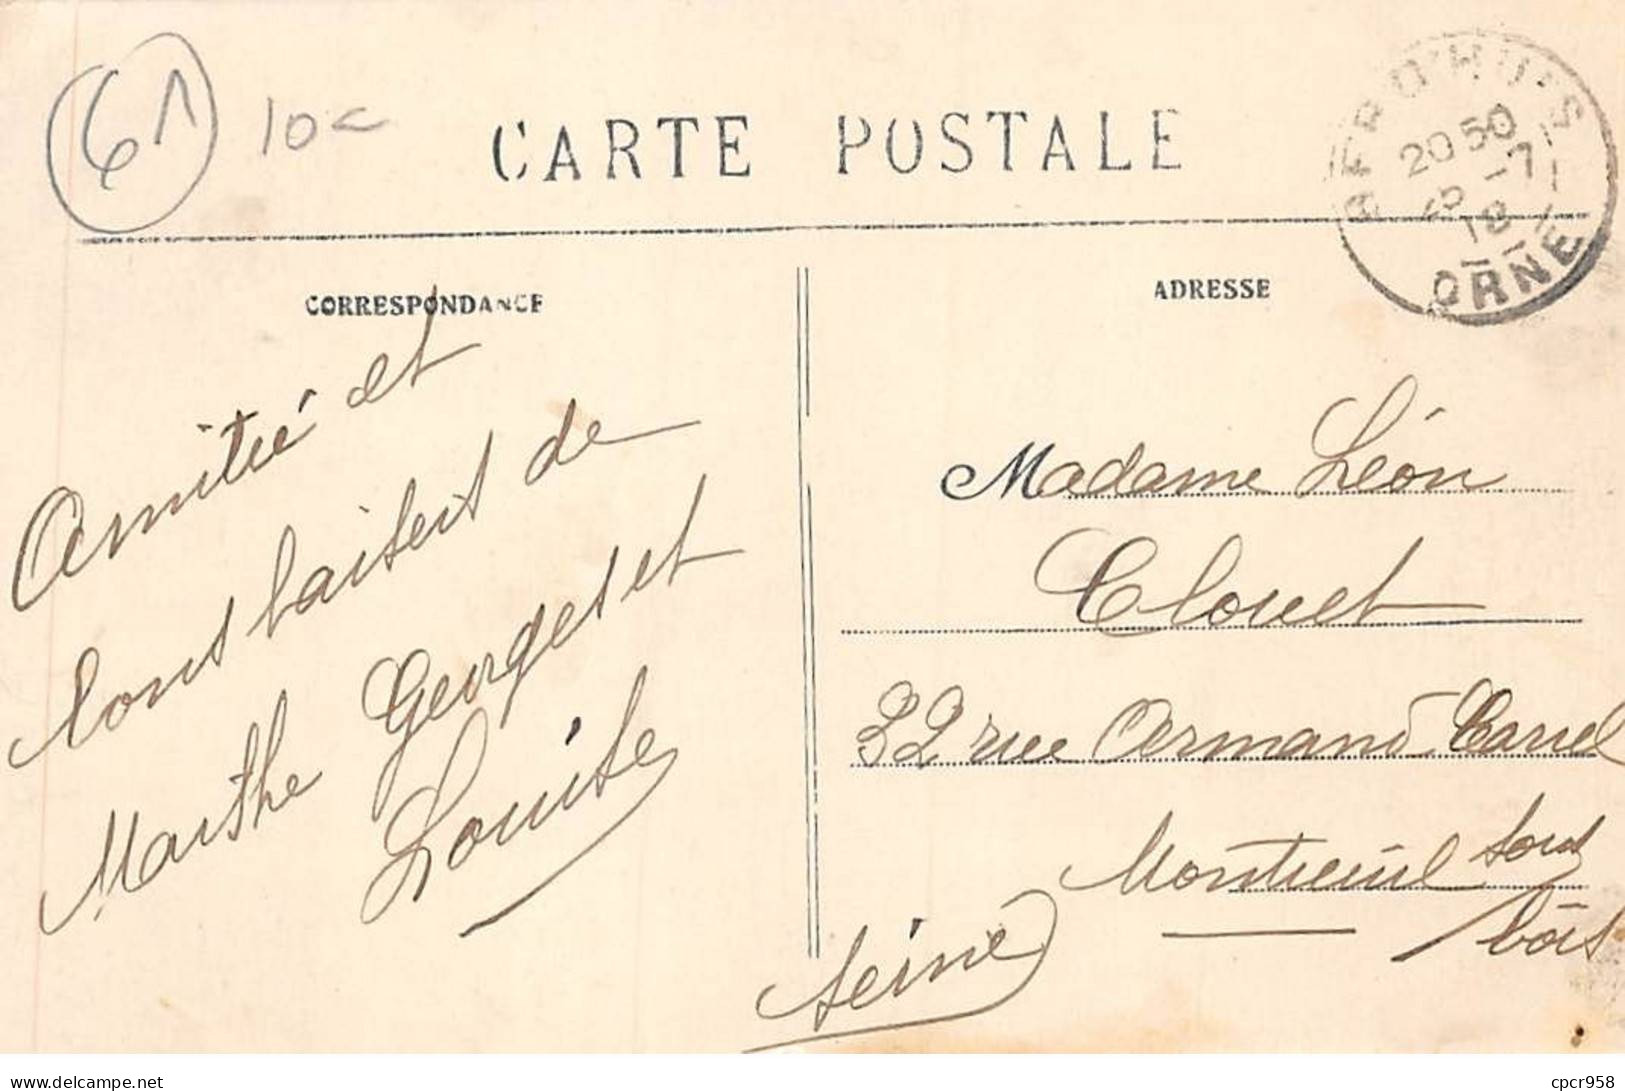 61
10c
CARTE POSTALE
20 50
ORNE
CORRESPONDANCE
ADRESSE
Amitié et
bons baisers de
Marthe Georges et
Louise
Madame Léon
Clouet
32 rue Armand Carrel
Montreuil sous
bois
Seine
www.delcampe.net
cpcr958